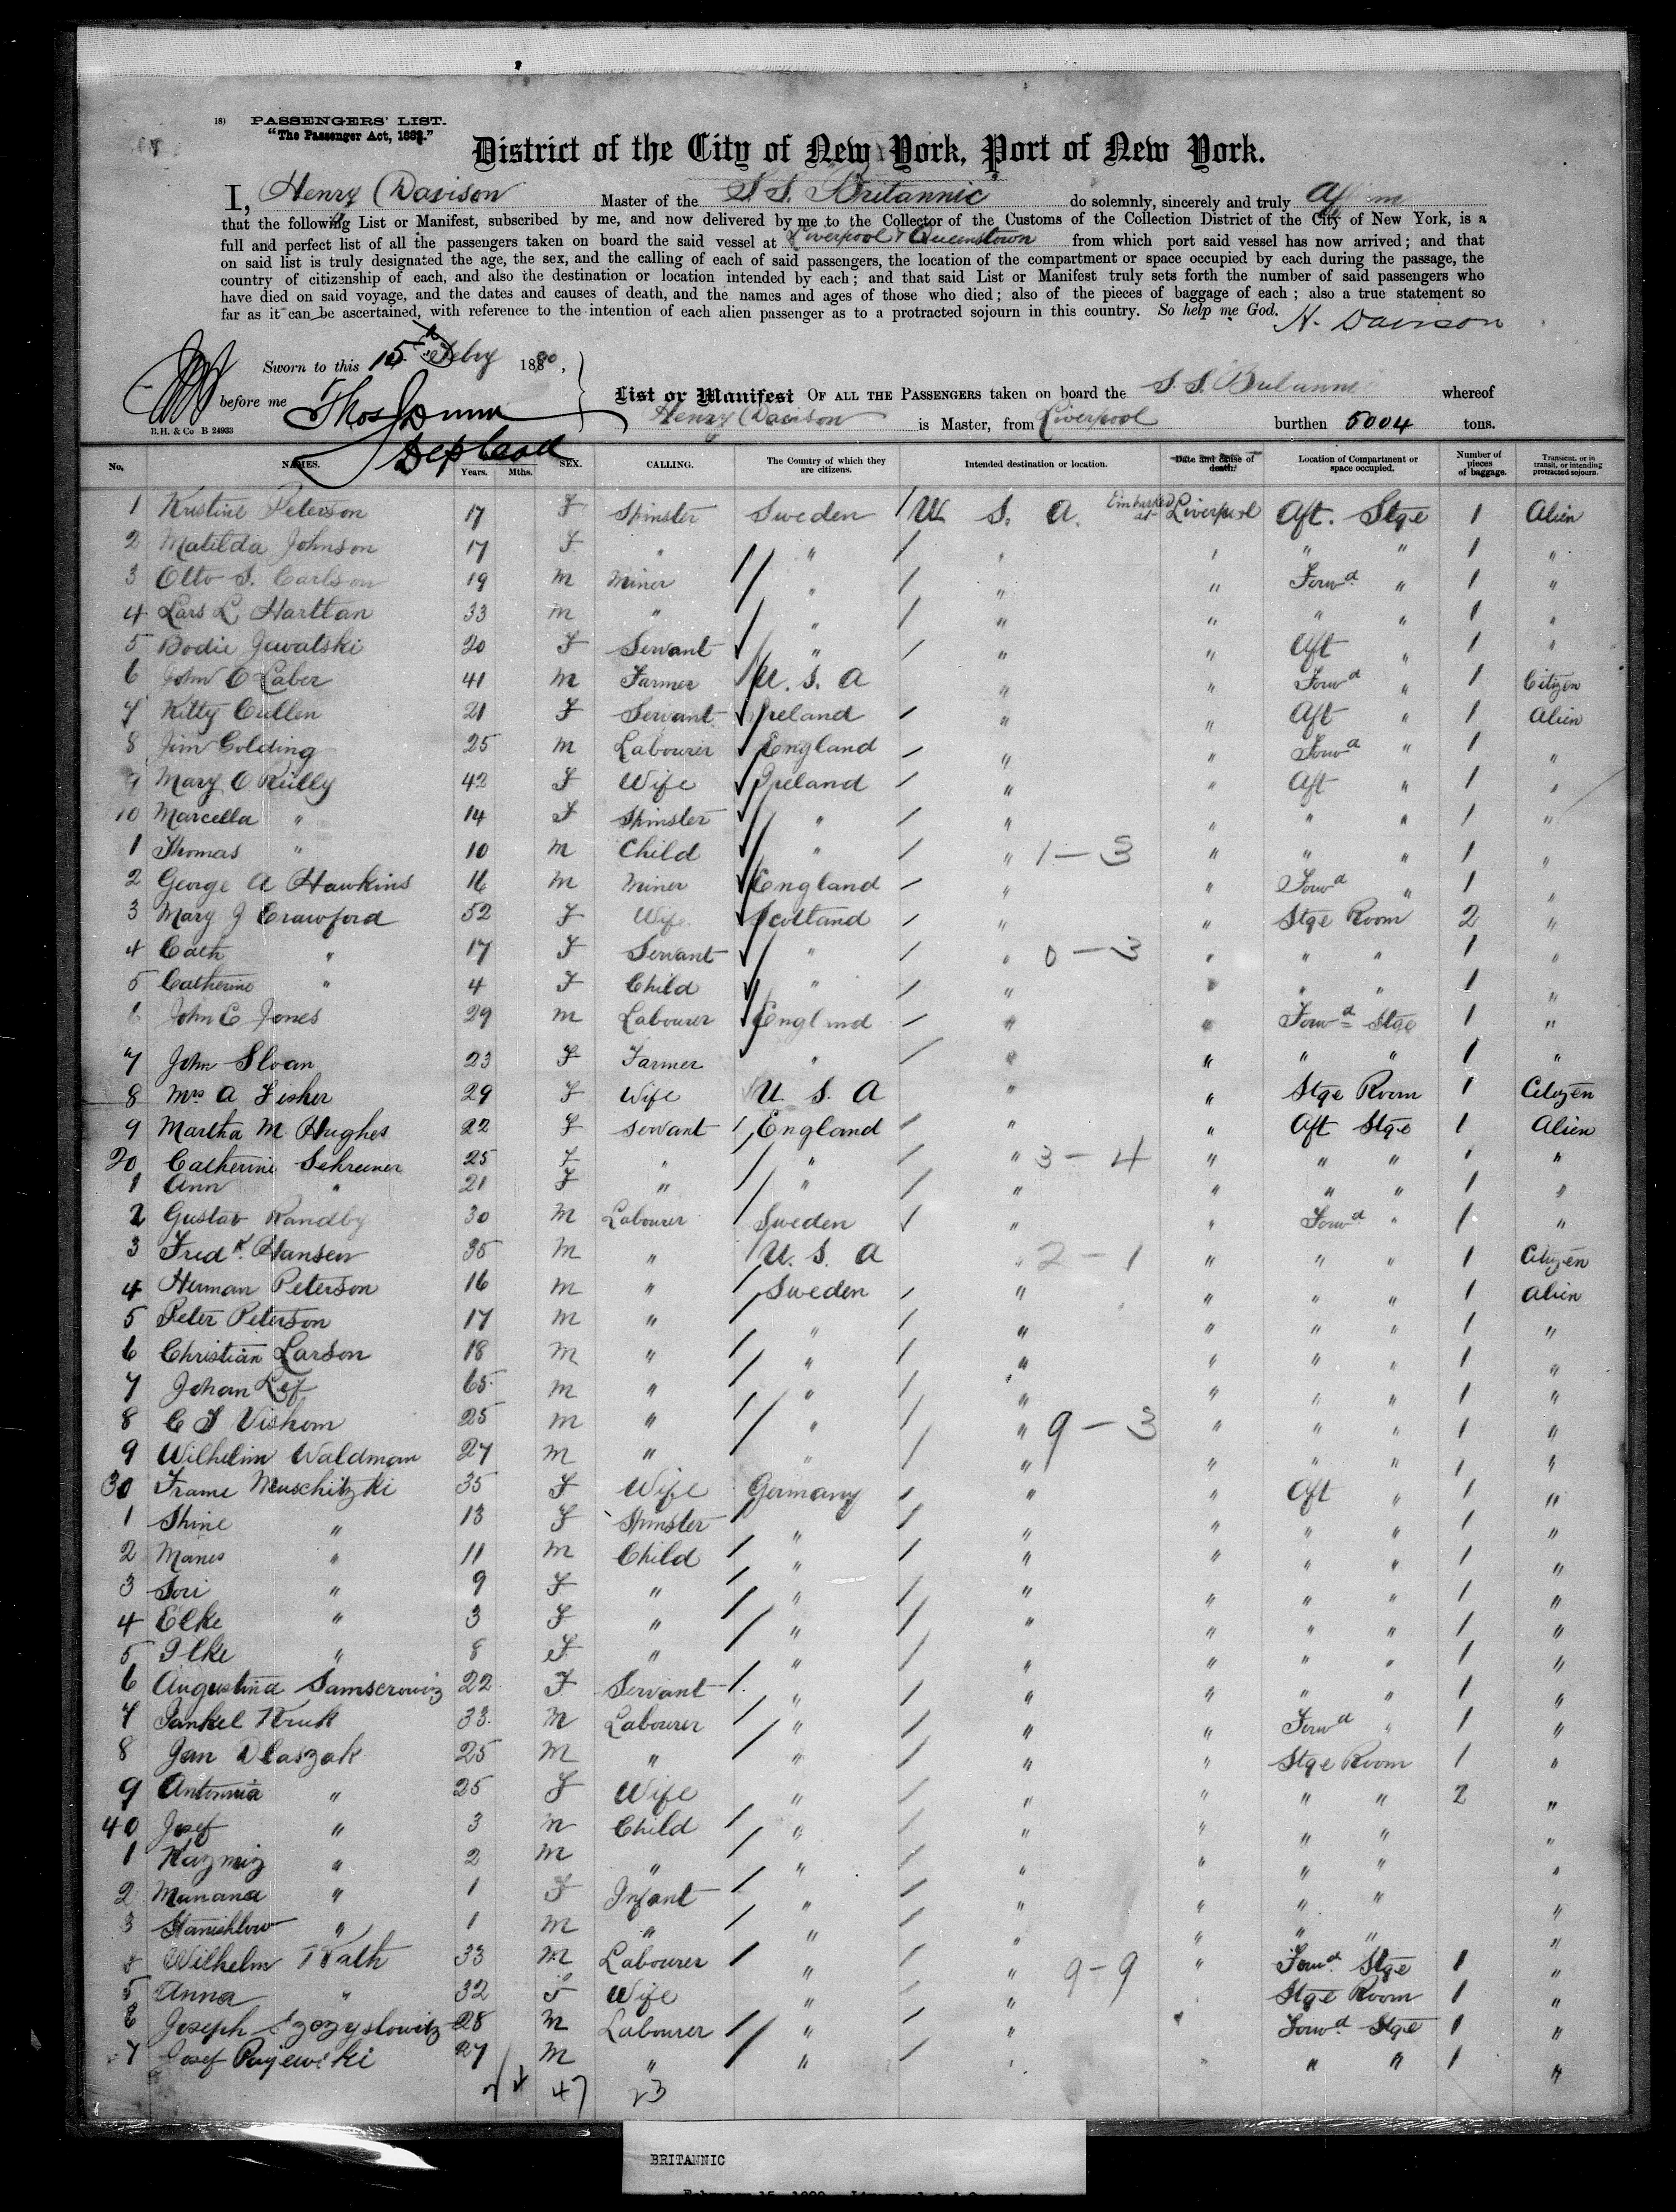 18) PASSENGERS' LIST.
"The Passenger Act, 1882."
District of the City of New York, Port of New York.
I, Henry Davison Master of the S.S. Britannic do solemnly, sincerely and truly Affirm
that the following List or Manifest, subscribed by me, and now delivered by me to the Collector of the Customs of the Collection District of the City of New York, is a
full and perfect list of all the passengers taken on board the said vessel at Liverpool & Queenstown from which port said vessel has now arrived; and that
on said list is truly designated the age, the sex, and the calling of each of said passengers, the location of the compartment or space occupied by each during the passage, the
country of citizenship of each, and also the destination or location intended by each; and that said List or Manifest truly sets forth the number of said passengers who
have died on said voyage, and the dates and causes of death, and the names and ages of those who died; also of the pieces of baggage of each; also a true statement so
far as it can be ascertained, with reference to the intention of each alien passenger as to a protracted sojourn in this country. So help me God. H. Davison
Sworn to this 15th Feby 1890,
before me Thos Dunn
B.H. & Co B 24933
List or Manifest OF ALL THE PASSENGERS taken on board the S.S. Britannic whereof
Henry Davison is Master, from Liverpool burthen 5004 tons.
No. NAMES. Years. Mths. SEX. CALLING. The Country of which they are citizens. Intended destination or location. Date and cause of death. Location of Compartment or space occupied. Number of pieces of baggage. Transient, or in transit, or intending protracted sojourn.
1 Kristine Peterson 17 F Spinster Sweden U. S. A. Embarked at Liverpool Aft. Stge 1 Alien
2 Matilda Johnson 17 F " " " " " " 1 "
3 Otto S. Carlson 19 M Miner " " " Forwd " 1 "
4 Lars L Harttan 33 M " " " " " " 1 "
5 Bodie Juwatski 20 F Servant " " " Aft " 1 "
6 John O Laber 41 M Farmer U. S. A " " Forwd " 1 Citizen
7 Kitty Cullen 21 F Servant Ireland " " Aft " 1 Alien
8 Jim Golding 25 M Labourer England " " Forwd " 1 "
9 Mary O Reilly 42 F Wife Ireland " " Aft " 1 "
10 Marcella " 14 F Spinster " " " " " 1 "
1 Thomas " 10 M Child " " 1-3 " " " 1 "
2 George A Hawkins 16 M Miner England " " Forwd " 1 "
3 Mary J Crawford 52 F Wife Scotland " " Stge Room 2 "
4 Cath " 17 F Servant " " 0-3 " " " 1 "
5 Catherine " 4 F Child " " " " " 1 "
6 John E Jones 29 M Labourer England " " Forwd Stge 1 "
7 John Sloan 23 F Farmer " " " " " 1 "
8 Mrs A Fisher 29 F Wife U. S. A " " Stge Room 1 Citizen
9 Martha M. Hughes 22 F Servant England " " Aft Stge 1 Alien
20 Catherine Schreener 25 F " " " 3-4 " " " 1 "
1 Ann " 21 F " " " " " " 1 "
2 Gustav Randby 30 M Labourer Sweden " " Forwd " 1 "
3 Fredk. Hansen 35 M " U. S. A " 2-1 " " " 1 Citizen
4 Herman Peterson 16 M " Sweden " " " " 1 Alien
5 Peter Peterson 17 M " " " " " " 1 "
6 Christian Larson 18 M " " " " " " 1 "
7 Johan Lef 65 M " " " " " " 1 "
8 C F Viskom 25 M " " " 9-3 " " " 1 "
9 Wilhelm Waldman 27 M " " " " " " 1 "
30 Frame Muschitzki 35 F Wife Germany " " Aft " 1 "
1 Shine " 13 F Spinster " " " " " 1 "
2 Manes " 11 M Child " " " " " 1 "
3 Sori " 9 F " " " " " " 1 "
4 Elke " 3 F " " " " " " 1 "
5 Ilke " 8 F " " " " " " 1 "
6 Augustina Samserowiz 22 F Servant " " " " " 1 "
7 Jankel Kruk 33 M Labourer " " " Forwd " 1 "
8 Jan Dlaszak 25 M " " " " Stge Room 1 "
9 Antonnia " 25 F Wife " " " " " 2 "
40 Josef " 3 M Child " " " " " "
1 Kazmiz " 2 M " " " " " " "
2 Manana " 1 F Infant " " " " " "
3 Stanishlow " 1 M " " " " " "
4 Wilhelm Rath 33 M Labourer " " 9-9 " Forwd Stge 1 "
5 Anna " 32 F Wife " " Stge Room 1 "
6 Joseph Szozyslowitz 28 M Labourer " " " Forwd Stge 1 "
7 Josef Payewiki 27 M " " " " " " 1 "
47 23
BRITANNIC